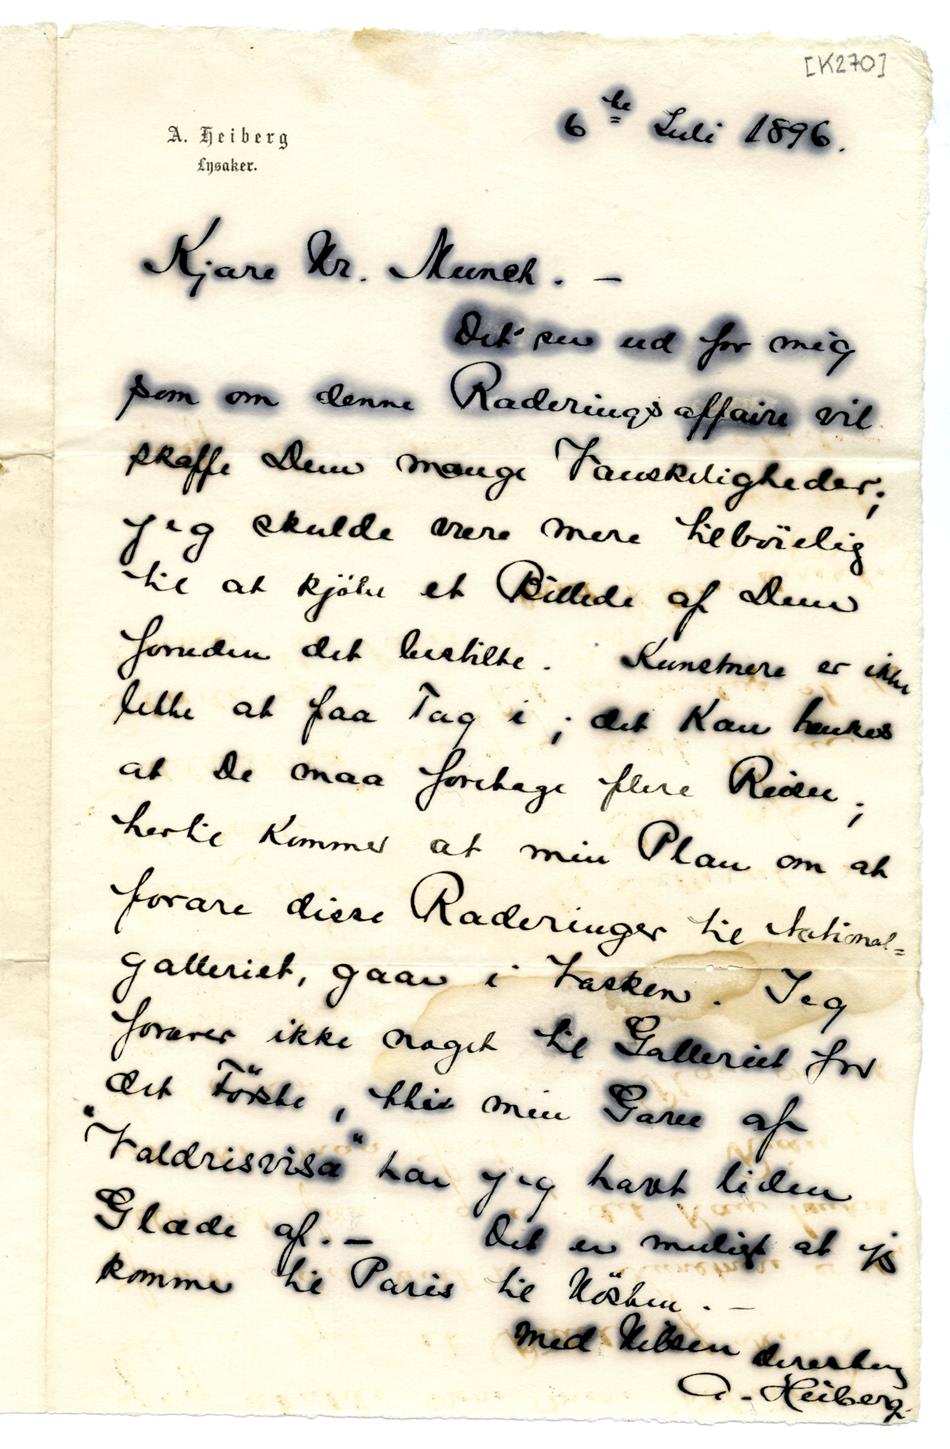 [K270]
A. Heiberg
Lysaker.
6te Juli 1896.
Kjære Hr. Munch. —
Det ser ud for mig
som om denne Raderings affaire vil
skaffe Dem mange Vanskeligheder;
jeg skulde være mere tilböielig
til at kjöbe et Billede af Dem
foruden det bestilte. Kunstnere er ikke
lette at faa Tag i; det kan hænkes
at De maa foretage flere Reiser;
hertil kommer at min Plan om at
forære disse Raderinger til National-
galleriet, gaar i Vasken. Jeg
forærer ikke noget til Galleriet for
det Förste, thi min Gave af
"Valdrisvisa" har jeg havt liden
Glæde af. — Det er muligt at jeg
kommer til Paris til Hösten. —
Med Hilsen Deres
A. Heiberg.